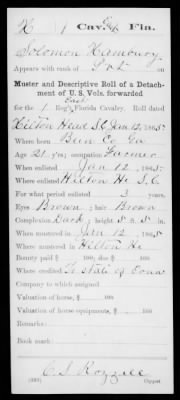 H 1 Cav. Fla.
Solomon
Appears with rank of Pvt on
Muster and Descriptive Roll of a Detach-
ment of U. S. Vols. forwarded
East
for the 1 Reg't Florida Cavalry. Roll dated
Hilton Head S.C. Jan. 12, 1865
Where born Co. Ga
Age 21 y'rs; occupation Farmer
When enlisted Jan 12, 1865
Where enlisted Hilton He S.C.
For what period enlisted 3 years.
Eyes Brown; hair Brown
Complexion Dark; height 5 ft. 5 in.
When mustered in Jan 12, 1865
Where mustered in Hilton He
Bounty paid $ 100; due $ 100
Where credited To state of Conn
Company to which assigned
Valuation of horse, $ 100
Valuation of horse equipments, $ 100
Remarks:
Book mark:
C S
(339) Copyist.